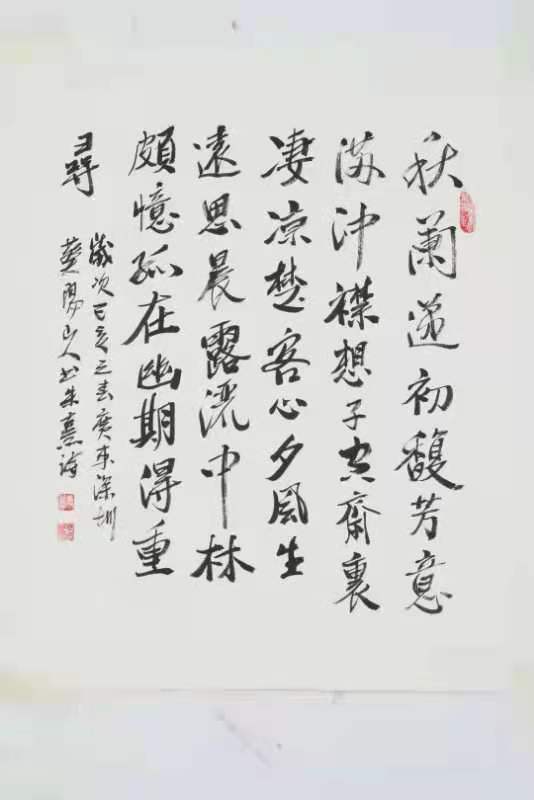 秋蘭遞初馥芳意
滿沖襟想子空齋裏
凄凉楚客心夕風生
遠思晨露流中林
頗憶孤在幽期得重
尋
歲次己亥之春廣東深圳
葵陽山人書朱熹詩